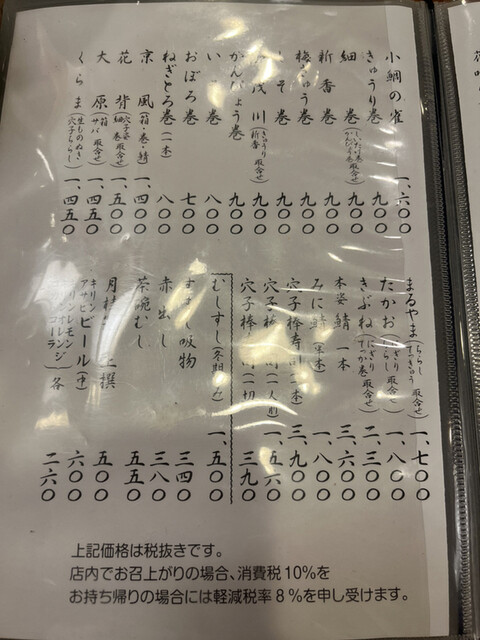 小鯛の雀 一、六〇〇
きゅうり巻 九〇〇
細 巻 九〇〇
新香巻 九〇〇
梅きゅう巻 九〇〇
そ 巻 九〇〇
茂川(きゅうり 新香 取合せ) 九〇〇
かんぴょう巻 九〇〇
い 巻 八〇〇
おぼろ巻 七〇〇
ねぎとろ巻(一本) 八〇〇
京風(箱・巻・鯖) 一、四〇〇
花背(穴子姿 細巻 取合せ) 一、五〇〇
大原(箱 サバ 取合せ) 一、四五〇
くらま(生ものぬき 穴子ちらし) 一、四五〇
まるやま(ちらし てっきゅう 取合せ) 一、七〇〇
たかお(にぎり ちらし 取合せ) 一、八〇〇
きぶね(にぎり てっか巻 取合せ) 二、三〇〇
本姿鯖 一本 三、六〇〇
みに鯖(半本) 一、八〇〇
穴子棒寿司(一本) 三、九〇〇
穴子棒 司(一人前) 一、五六〇
穴子棒 司(一切) 三九〇
むしすし(冬期のみ) 一、五〇〇
すまし吸物 三四〇
赤出し 三八〇
茶碗むし 五五〇
月桂 上撰 五〇〇
キリン アサヒ ビール(中) 六〇〇
キリンレモン
オレンジ
コーラ 各 二六〇
上記価格は税抜きです。
店内でお召上がりの場合、消費税10%を
お持ち帰りの場合には軽減税率8%を申し受けます。